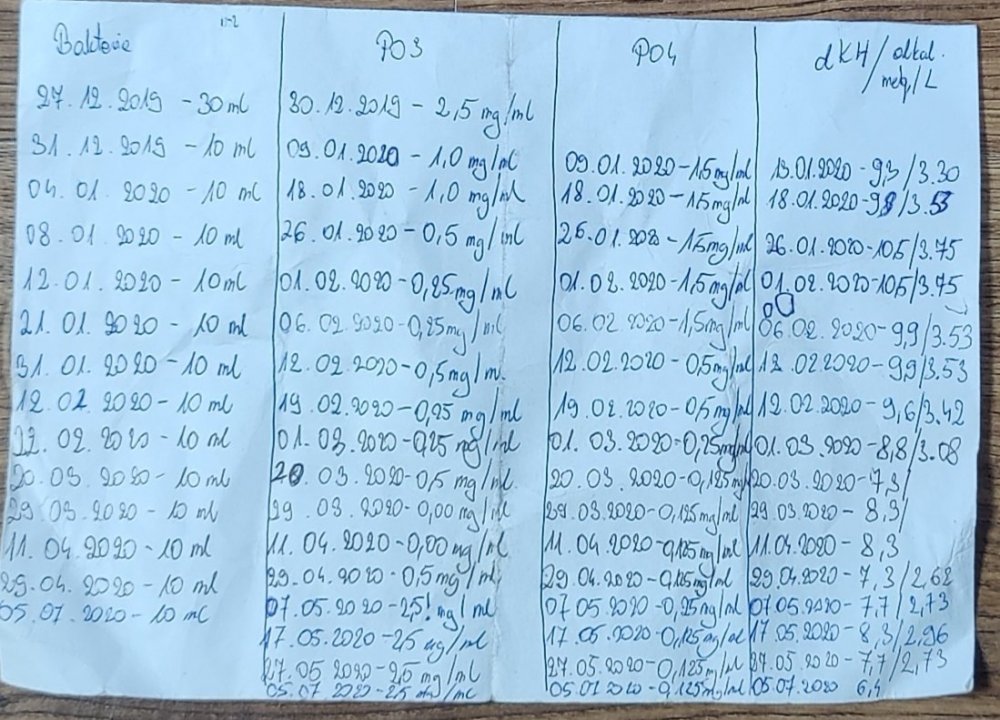 Bakterie
27.12.2019 - 30 ml
31.12.2019 - 10 ml
04.01.2020 - 10 ml
08.01.2020 - 10 ml
12.01.2020 - 10 ml
21.01.2020 - 10 ml
31.01.2020 - 10 ml
12.02.2020 - 10 ml
22.02.2020 - 10 ml
20.03.2020 - 10 ml
29.03.2020 - 10 ml
11.04.2020 - 10 ml
29.04.2020 - 10 ml
05.07.2020 - 10 ml
PO3
30.12.2019 - 2,5 mg/ml
09.01.2020 - 1,0 mg/ml
18.01.2020 - 1,0 mg/ml
26.01.2020 - 0,5 mg/ml
01.02.2020 - 0,25 mg/ml
06.02.2020 - 0,25 mg/ml
12.02.2020 - 0,5 mg/ml
19.02.2020 - 0,25 mg/ml
01.03.2020 - 0,25 mg/ml
20.03.2020 - 0,5 mg/ml
29.03.2020 - 0,00 mg/ml
11.04.2020 - 0,00 mg/ml
29.04.2020 - 0,5 mg/ml
07.05.2020 - 2,5! mg/ml
17.05.2020 - 2,5 mg/ml
27.05.2020 - 2,5 mg/ml
05.07.2020 - 2,5 mg/ml
PO4
09.01.2020 - 1,5 mg/ml
18.01.2020 - 1,5 mg/ml
26.01.2020 - 1,5 mg/ml
01.02.2020 - 1,5 mg/ml
06.02.2020 - 1,5 mg/ml
12.02.2020 - 0,5 mg/ml
19.02.2020 - 0,5 mg/ml
01.03.2020 - 0,25 mg/ml
20.03.2020 - 0,125 mg/l
29.03.2020 - 0,125 mg/ml
11.04.2020 - 0,125 mg/ml
29.04.2020 - 0,125 mg/ml
07.05.2020 - 0,25 mg/ml
17.05.2020 - 0,125 mg/ml
27.05.2020 - 0,125 mg/ml
05.07.2020 - 0,125 mg/ml
dKH / alkal.
meq/L
13.01.2020 - 9,3/3.30
18.01.2020 - 9,9/3.53
26.01.2020 - 10,5/3.75
01.02.2020 - 10,5/3.75
06.02.2020 - 9,9/3.53
12.02.2020 - 9,9/3.53
12.02.2020 - 9,6/3.42
01.03.2020 - 8,8/3.08
20.03.2020 - 7,3/
29.03.2020 - 8,3/
11.04.2020 - 8,3
29.04.2020 - 7,3/2,62
07.05.2020 - 7,7/2,73
17.05.2020 - 8,3/2,96
27.05.2020 - 7,7/2,73
05.07.2020 6,4